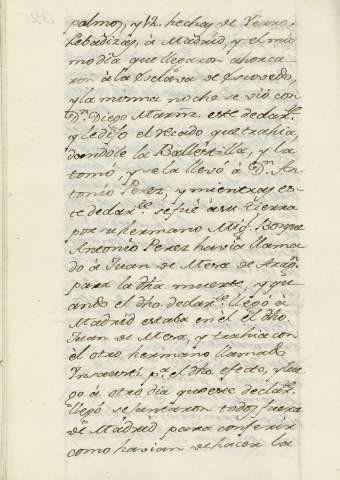 palmos, y 1/2. hechas de Verro.
Lebadizas, à Madrid, y el mis
mo dia que llegaron ahorca
ron à la Esclava de Escovedo,
y la misma noche se vió con
Dn. Diego Marinz. este declarte.
y le dijo el recado que trahia,
dandole la Ballestilla, y la
tomó, y se la llevó à Dn. An
tonio Perez, y mientras es
te declarte. se fué à su tierra
por su hermano Migl. Bosque
Antonio Perez havia llama
do à Juan de Mesa de Aragn.
para la dha muerte, y qu
ando el dho. declarte. llegó à
Madrid estaba en él el dho
Juan de Mesa, y trahia con
él otro hermano llamado
Insausti pa. el dho. efecto, y lue
go à otro dia que este declarte.
llegó, se juntaron todos fuera
de Madrid para conferir
como havian de hacer la